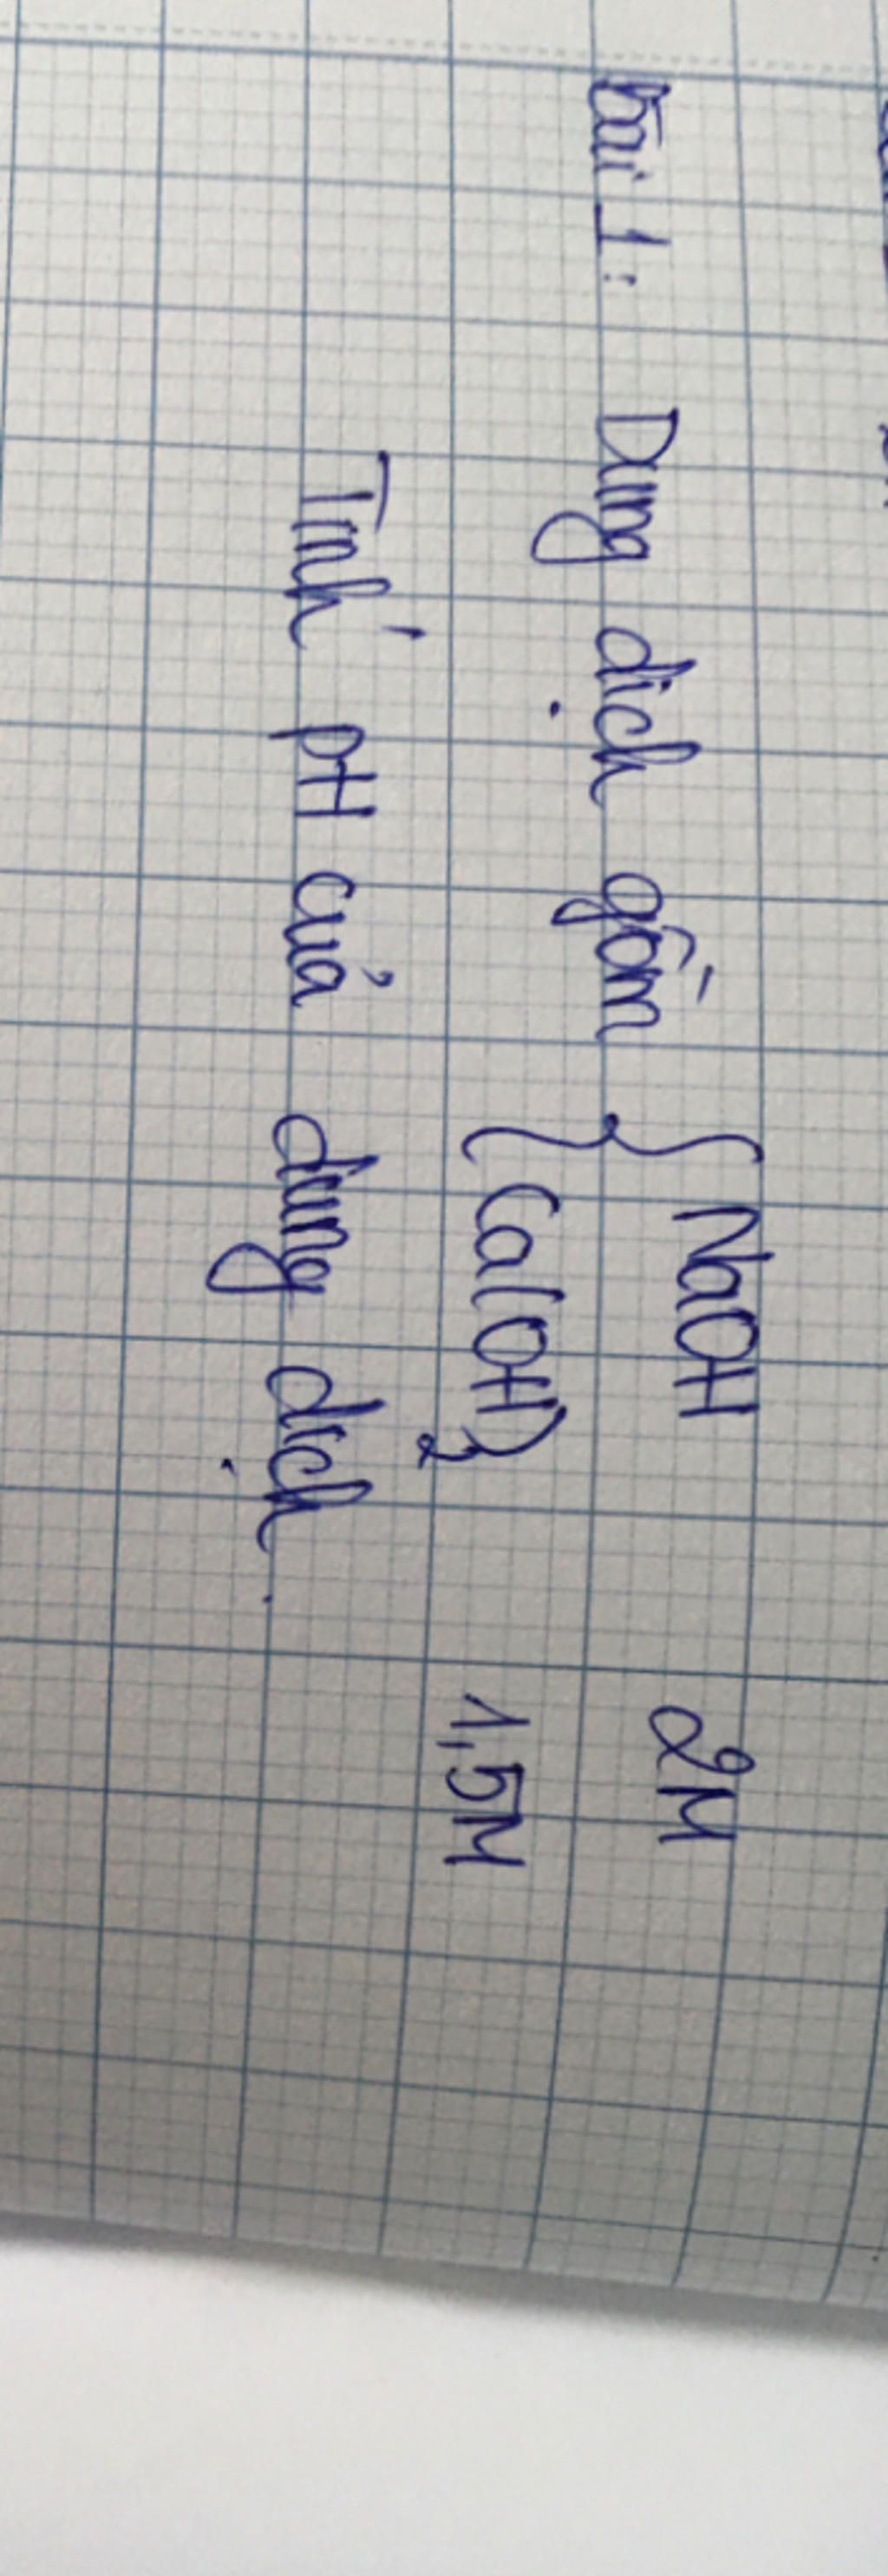 Bài 1: Dung dịch gồm { NaOH 2M
Ca(OH)2 1,5M
Tính pH của dung dịch.